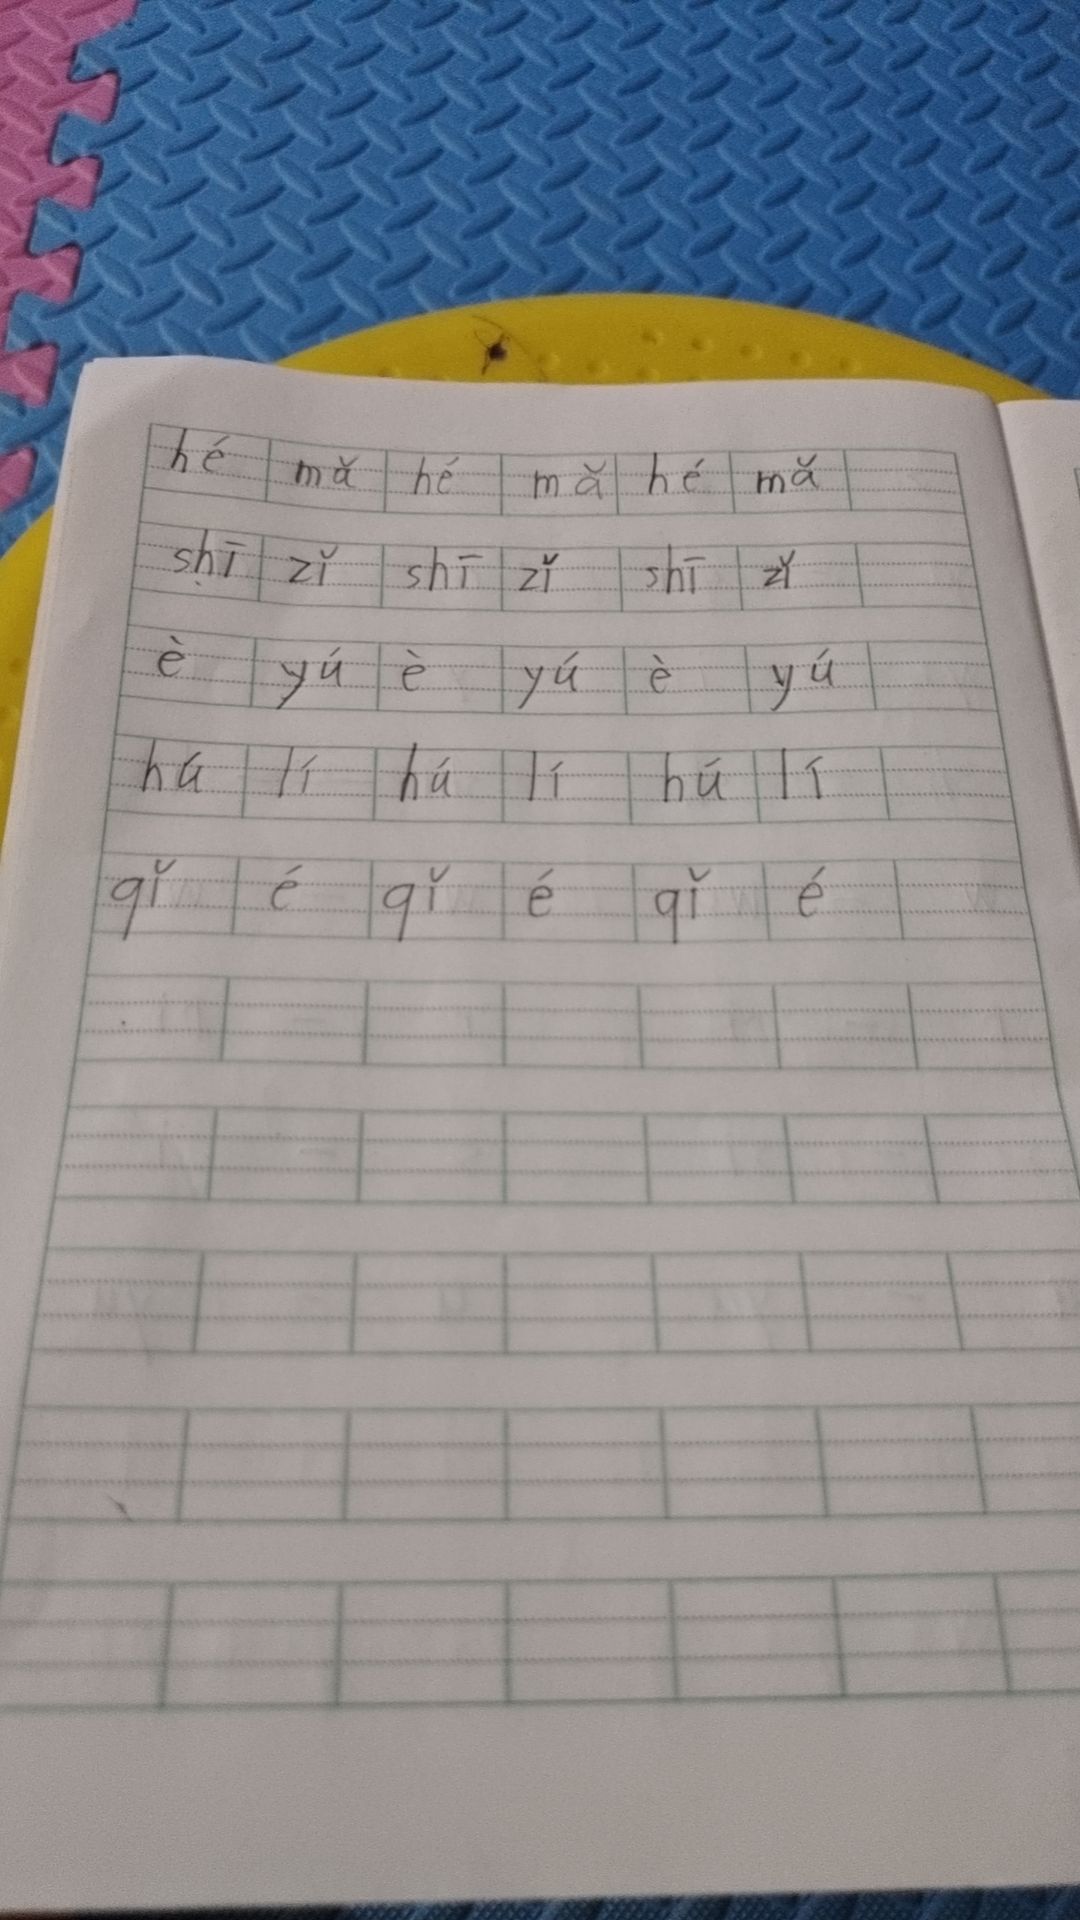 hé mǎ hé mǎ hé mǎ
shī zǐ shī zǐ shī zǐ
è yú è yú è yú
hú lí hú lí hú lí
qǐ é qǐ é qǐ é